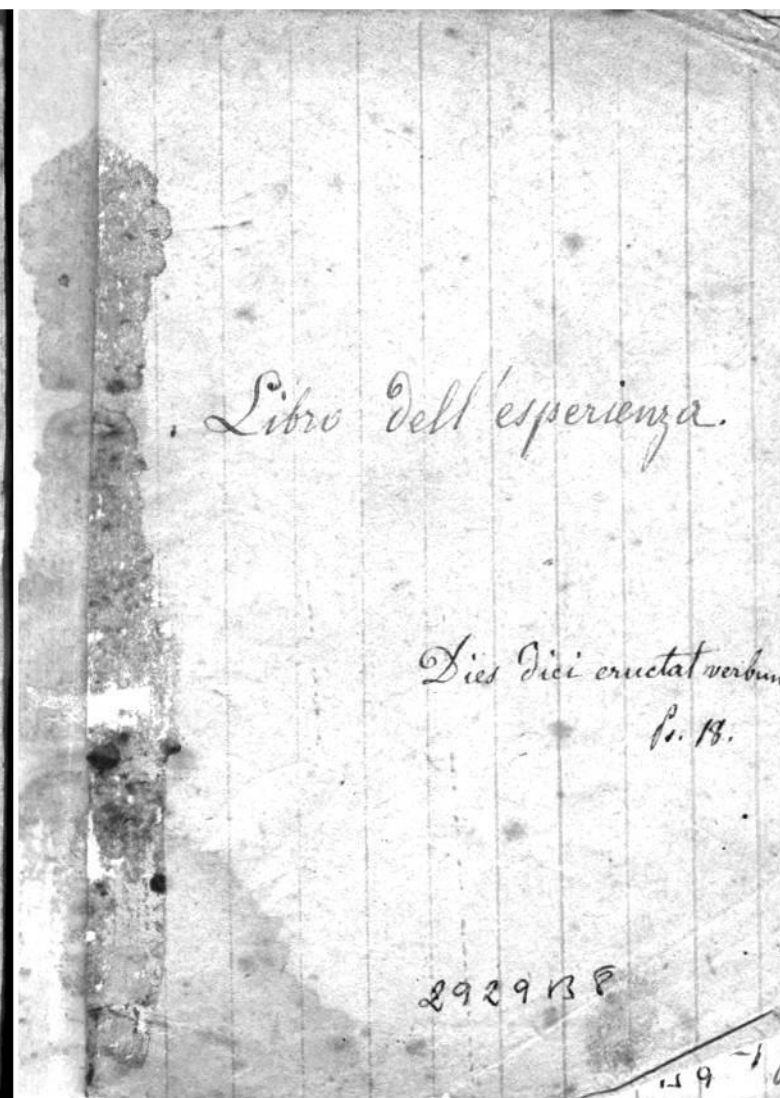 Libro dell'esperienza.
Dies diei eructat verbum
Ps. 18.
2929 B 8